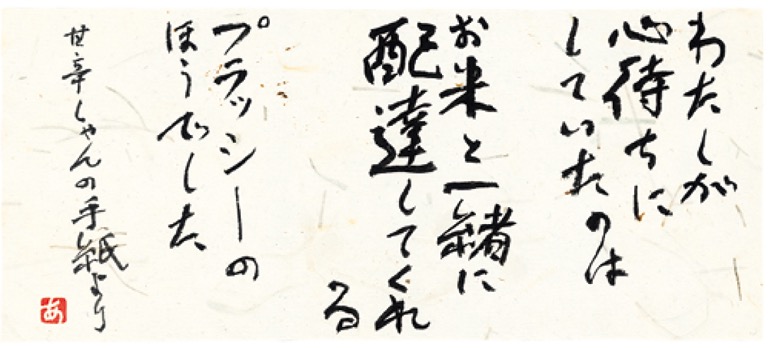 わたしが
心待ちに
していたのは
お米と一緒に
配達してくれ
る
プラッシーの
ほうでした
甘辛しゃんの手紙より
あ